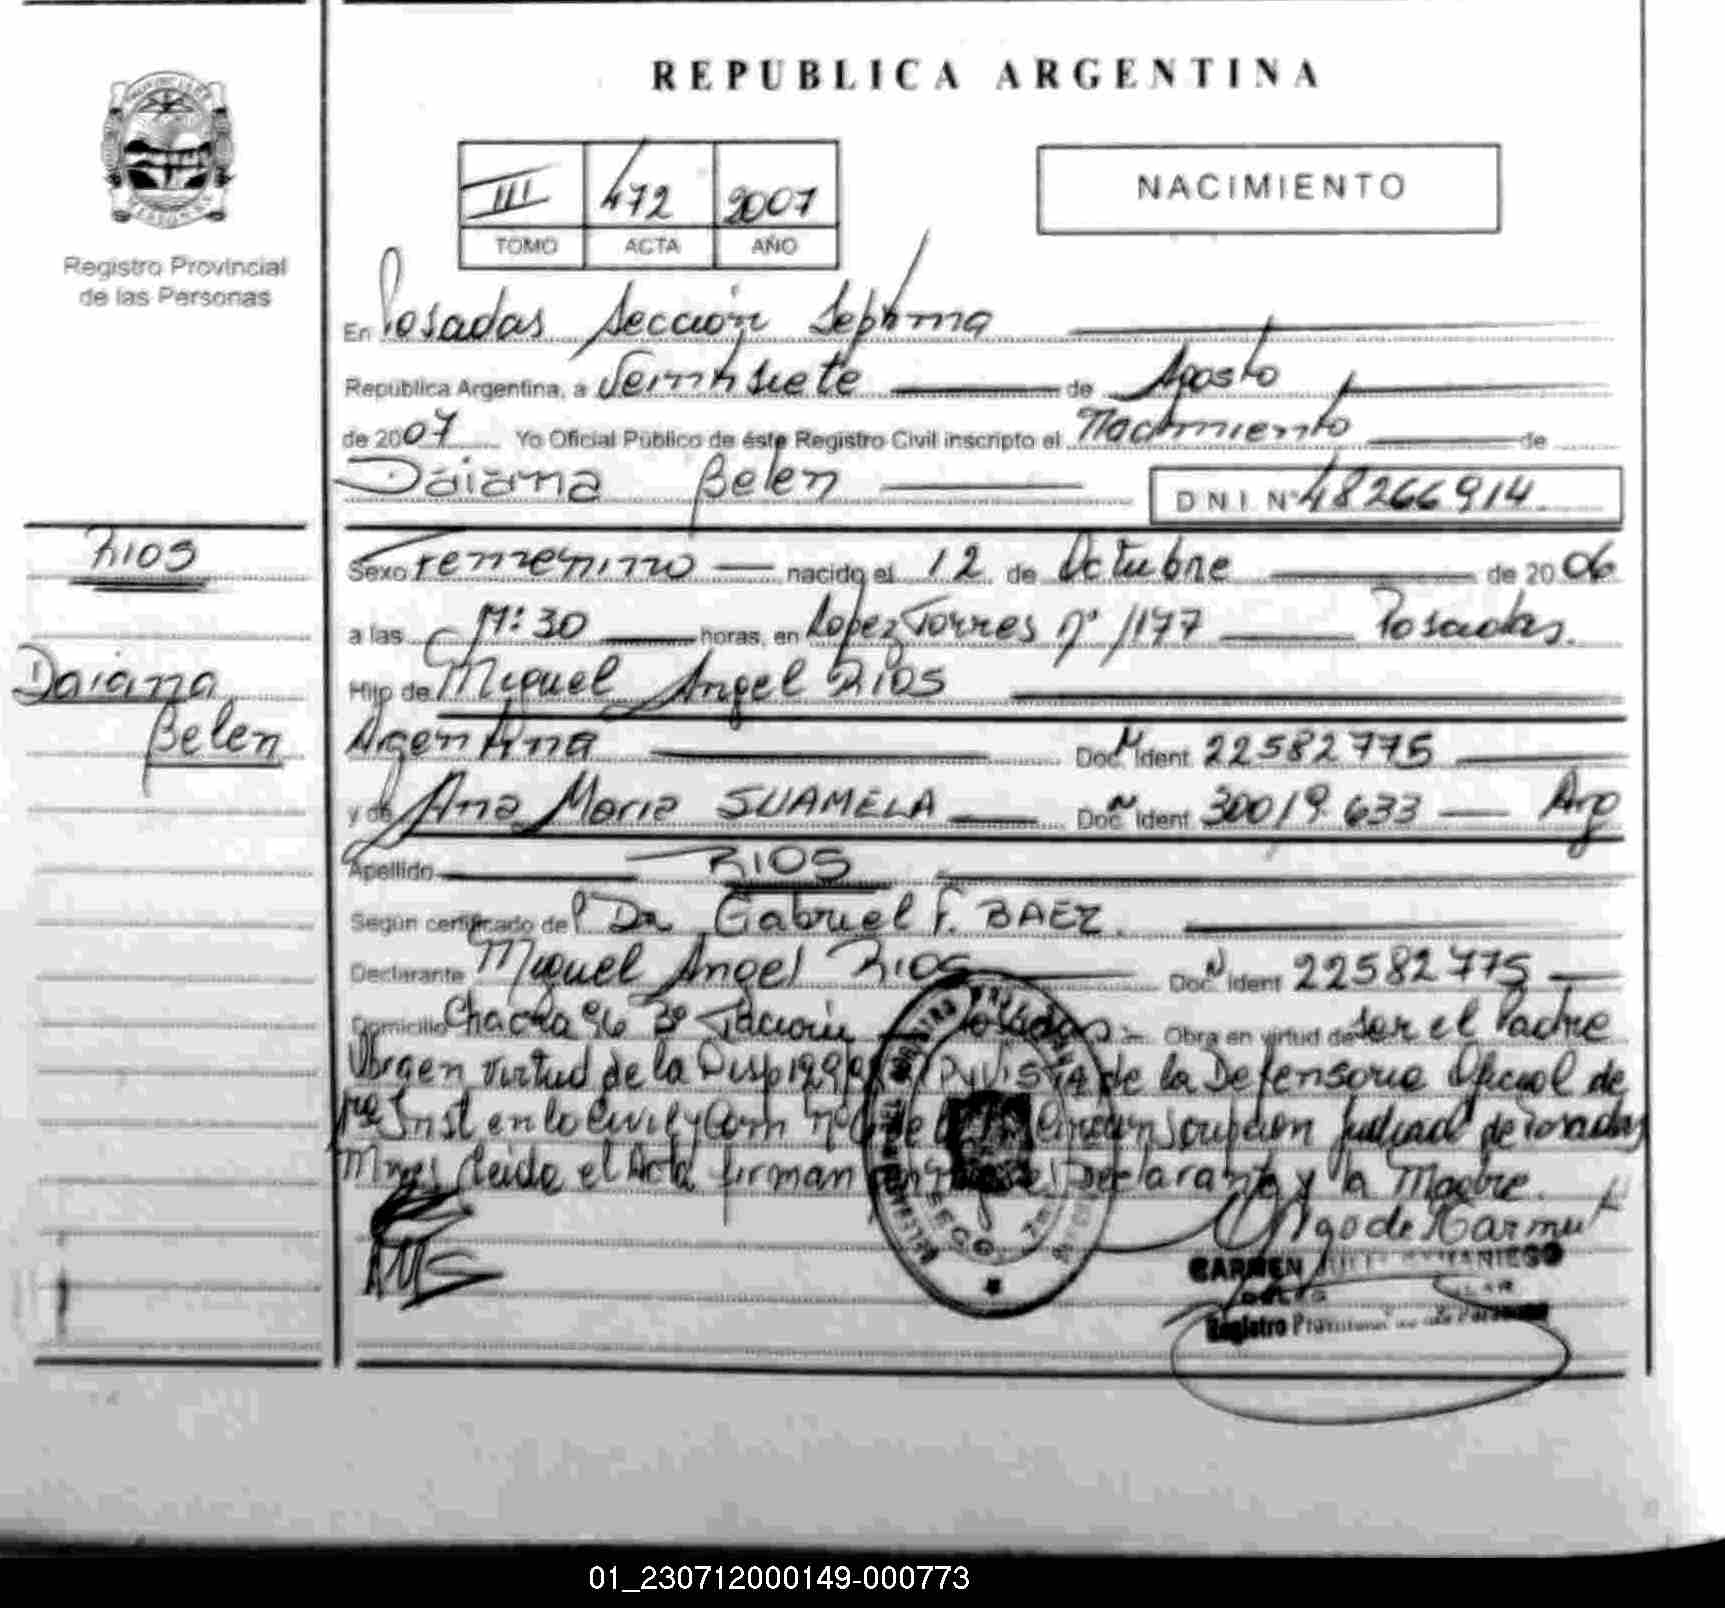 REPUBLICA ARGENTINA
III 472 2007
TOMO ACTA AÑO
NACIMIENTO
Registro Provincial
de las Personas
En Posadas Sección Septima
Republica Argentina, a Veintisiete de Agosto
de 2007 Yo Oficial Público de éste Registro Civil inscripto el Nacimiento de
Daiana Belen
D N I N° 48266914
RIOS
Daiana
Belen
Sexo Femenino nacido el 12 de Octubre de 2006
a las 17:30 horas, en Lopez Torres nº 1177 Posadas.
Hijo de Miguel Angel RIOS
Argentina Doc. N Ident 22582775
y de Ana Maria SUAMELA Doc. N Ident 30019.633 Arg
Apellido RIOS
Según certificado del Dr Gabriel F. BAEZ.
Declarante Miguel Angel Rios Doc. N Ident 22582775
Domicilio Chacra 96 Posadas Obra en virtud de ser el Padre
virtud de la Disp de la Defensoria Oficial de
Inst en lo Civil y Com Circunscripcion Judicial de Posadas
Mnes Leida el Acta firman Declarante y la Madre.
CARMEN
Registro
01_230712000149-000773